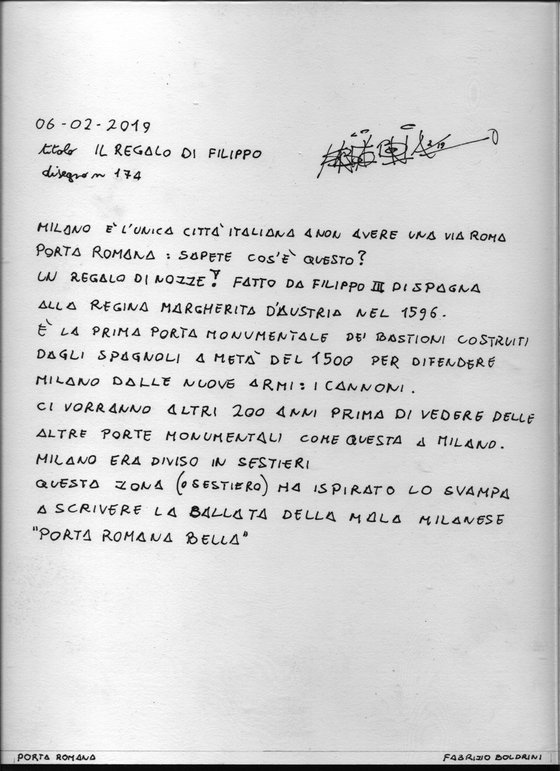 06-02-2019
titolo IL REGALO DI FILIPPO
disegno n 174
MILANO E' L'UNICA CITTA' ITALIANA A NON AVERE UNA VIA ROMA
PORTA ROMANA : SAPETE COS'È QUESTO?
UN REGALO DI NOZZE! FATTO DA FILIPPO III DI SPAGNA
ALLA REGINA MARGHERITA D'AUSTRIA NEL 1596.
È LA PRIMA PORTA MONUMENTALE DEI BASTIONI COSTRUITI
DAGLI SPAGNOLI A METÀ DEL 1500 PER DIFENDERE
MILANO DALLE NUOVE ARMI: I CANNONI.
CI VORRANNO ALTRI 200 ANNI PRIMA DI VEDERE DELLE
ALTRE PORTE MONUMENTALI COME QUESTA A MILANO.
MILANO ERA DIVISO IN SESTIERI
QUESTA ZONA (O SESTIERO) HA ISPIRATO LO SVAMPA
A SCRIVERE LA BALLATA DELLA MALA MILANESE
"PORTA ROMANA BELLA"
PORTA ROMANA
FABRIZIO BOLDRINI